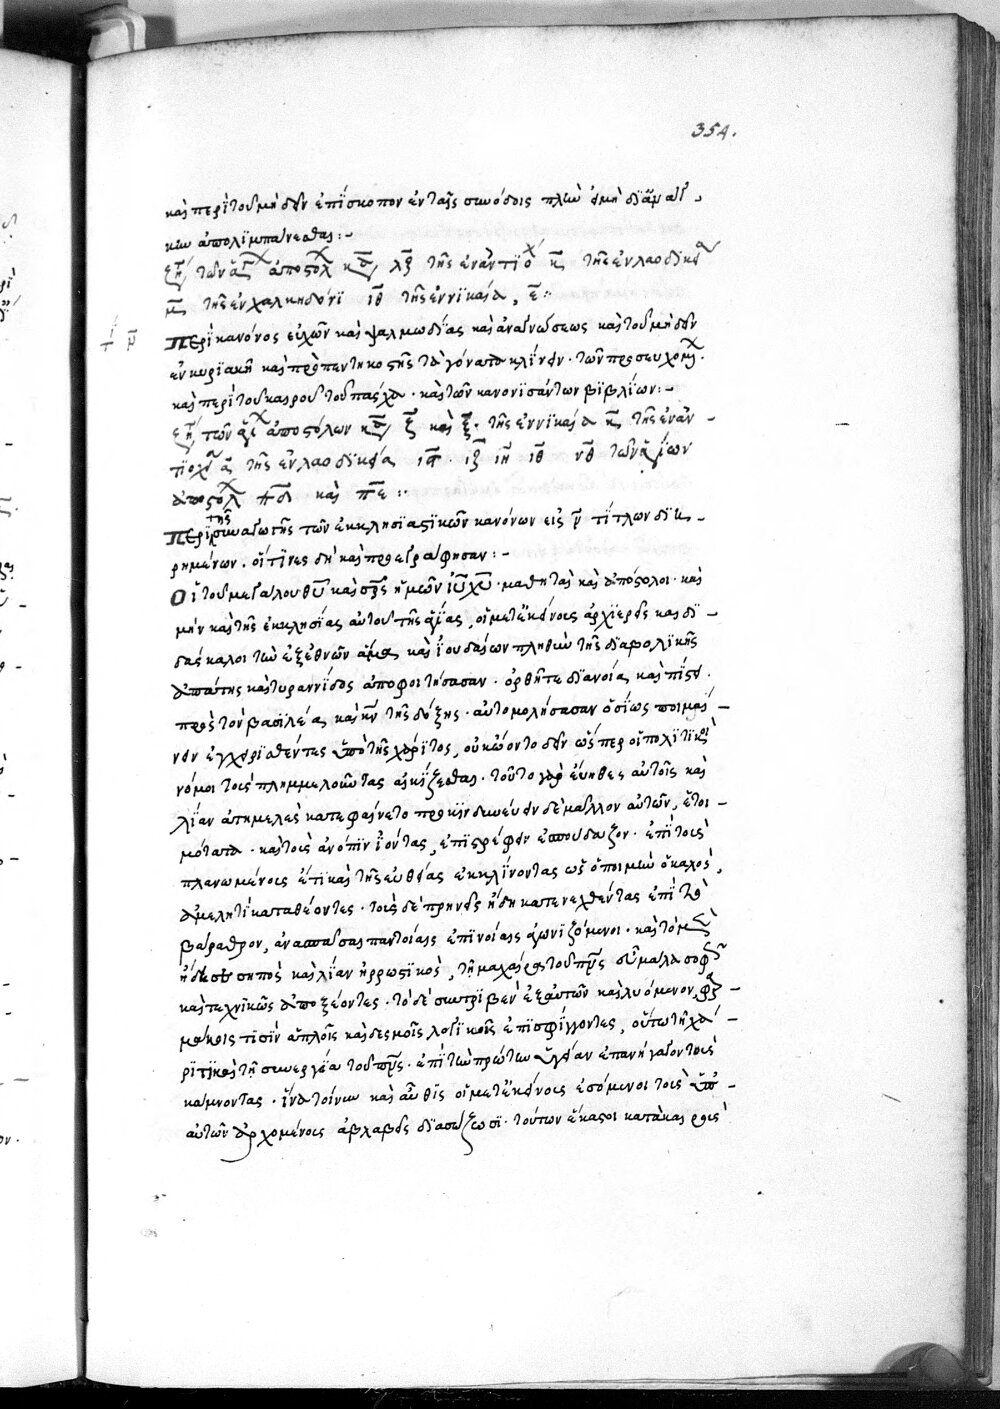 354.
καὶ περὶ τοῦ μηδὲν ἐπίσκοπον ἐν ταῖς συνόδοις πλὴν εἰ μὴ δι' ἀνάγ-
κην ἀπολιμπάνεσθαι:-
τῶν ἁγ ἀποστολ κα λζ τῆς ἐν ἀντιο κ τῆς ἐν λαοδικεία
μ τῆς ἐν χαλκηδόνι ιθ τῆς ἐν νικαία, ε:
Περὶ κανόνος εὐχῶν καὶ ψαλμωδίας καὶ ἀναγνώσεως καὶ τοῦ μηδὲν
ἐν κυριακῆ καὶ πρὸ πεντηκοστῆς τὰ γόνατα κλίνειν. τῶν προσευχομ.
καὶ περὶ τοῦ καιροῦ τοῦ πάσχα. καὶ τῶν κανονισάντων βιβλίων:-
τῶν ἁγί ἀποστόλων κα ξ καὶ ξ. τῆς ἐν νικαία κ τῆς ἐν ἀν-
τιοχ α τῆς ἐν λαοδικεία ια. ιζ ιη ιθ νθ τῶν ἁγίων
ἀποστολ καὶ πε:
Περὶ τῆς συναγωγῆς τῶν ἐκκλησιαστικῶν κανόνων εἰς ν τίτλων διῃ-
ρημένων. οἵτινες δὴ καὶ προεγράφησαν:-
Οἱ τοῦ μεγάλου θῦ καὶ σρς ἡμῶν ιῦ χῦ. μαθηταὶ καὶ ἀπόστολοι. καὶ
μὴν καὶ τῆς ἐκκλησίας αὐτοῦ τῆς ἁγίας, οἱ μετ' ἐκείνοις ἀρχιερεῖς καὶ δι-
δάσκαλοι τῶν ἐξ ἐθνῶν ἅμα καὶ ἰουδαίων πληθὺν τῆς διαβολικῆς
ἀπάτης καὶ τυραννίδος ἀποφοιτήσασαν. ὀρθῆ τε διανοία καὶ πίστει.
πρὸς τὸν βασιλέα καὶ κν τῆς δόξης. αὐτομολήσασαν ὁσίως ποιμαί-
νειν ἐγχειρισθέντες ὑπὸ τῆς χάριτος, οὐκ ᾤοντο δεῖν ὥσπερ οἱ πολιτικοὶ
νόμοι τοὺς πλημμελοῦντας αἰκίζεσθαι. τοῦτο γὰρ εὔηθες αὐτοῖς καὶ
λίαν ἀπημελὲς κατεφαίνετο προκινδυνεύειν δὲ μᾶλλον αὐτῶν, ἕτοι-
μότατα. καὶ τοὺς ἀνόπιν ἰόντας, ἐπιστρέφειν ἐσπούδαζον. ἐπὶ τοὺς
πλανωμένοις ἔτι καὶ τῆς εὐθείας ἐκκλίνοντας ὡς ὁ ποιμὴν ὁ καλὸς,
ἀμελητὶ καταθέοντες. τοὺς δὲ πρηνεῖς ἤδη κατενεχθέντας ἐπὶ τὸ
βάραθρον, ἀνασπάσαι παντοίαις ἐπινοίαις ἀγωνιζόμενοι. καὶ τὸ μὲν
ἤδη σεσηπὸς καὶ λίαν ἠρρωστικὸς, τῆ μαχαίρα τοῦ πνς σὺν μάλα σοφῶς
καὶ τεχνικῶς ἀποξέοντες. τὸ δὲ συντριβὲν ἐξ αὐτῶν καὶ λυόμενον, φαρ-
μάκοις τισὶν ἁπλοῖς καὶ δεσμοῖς λογικοῖς ἐπισφίγγοντες, οὕτω τῆ χά-
ριτι καὶ τῆ συνεργεία τοῦ πνς. ἐπὶ τὴν πρώτην ὑγείαν ἐπανήγαγον τοὺς
κάμνοντας. ἵνα τοίνυν καὶ αὖθις οἱ μετ' ἐκείνοις ἐσόμενοι τοὺς ὑπ'
αὐτῶν ἀρχομένοις ἀβλαβεῖς διασώζωσι. τούτων ἕκαστοι κατὰ καιροὺς